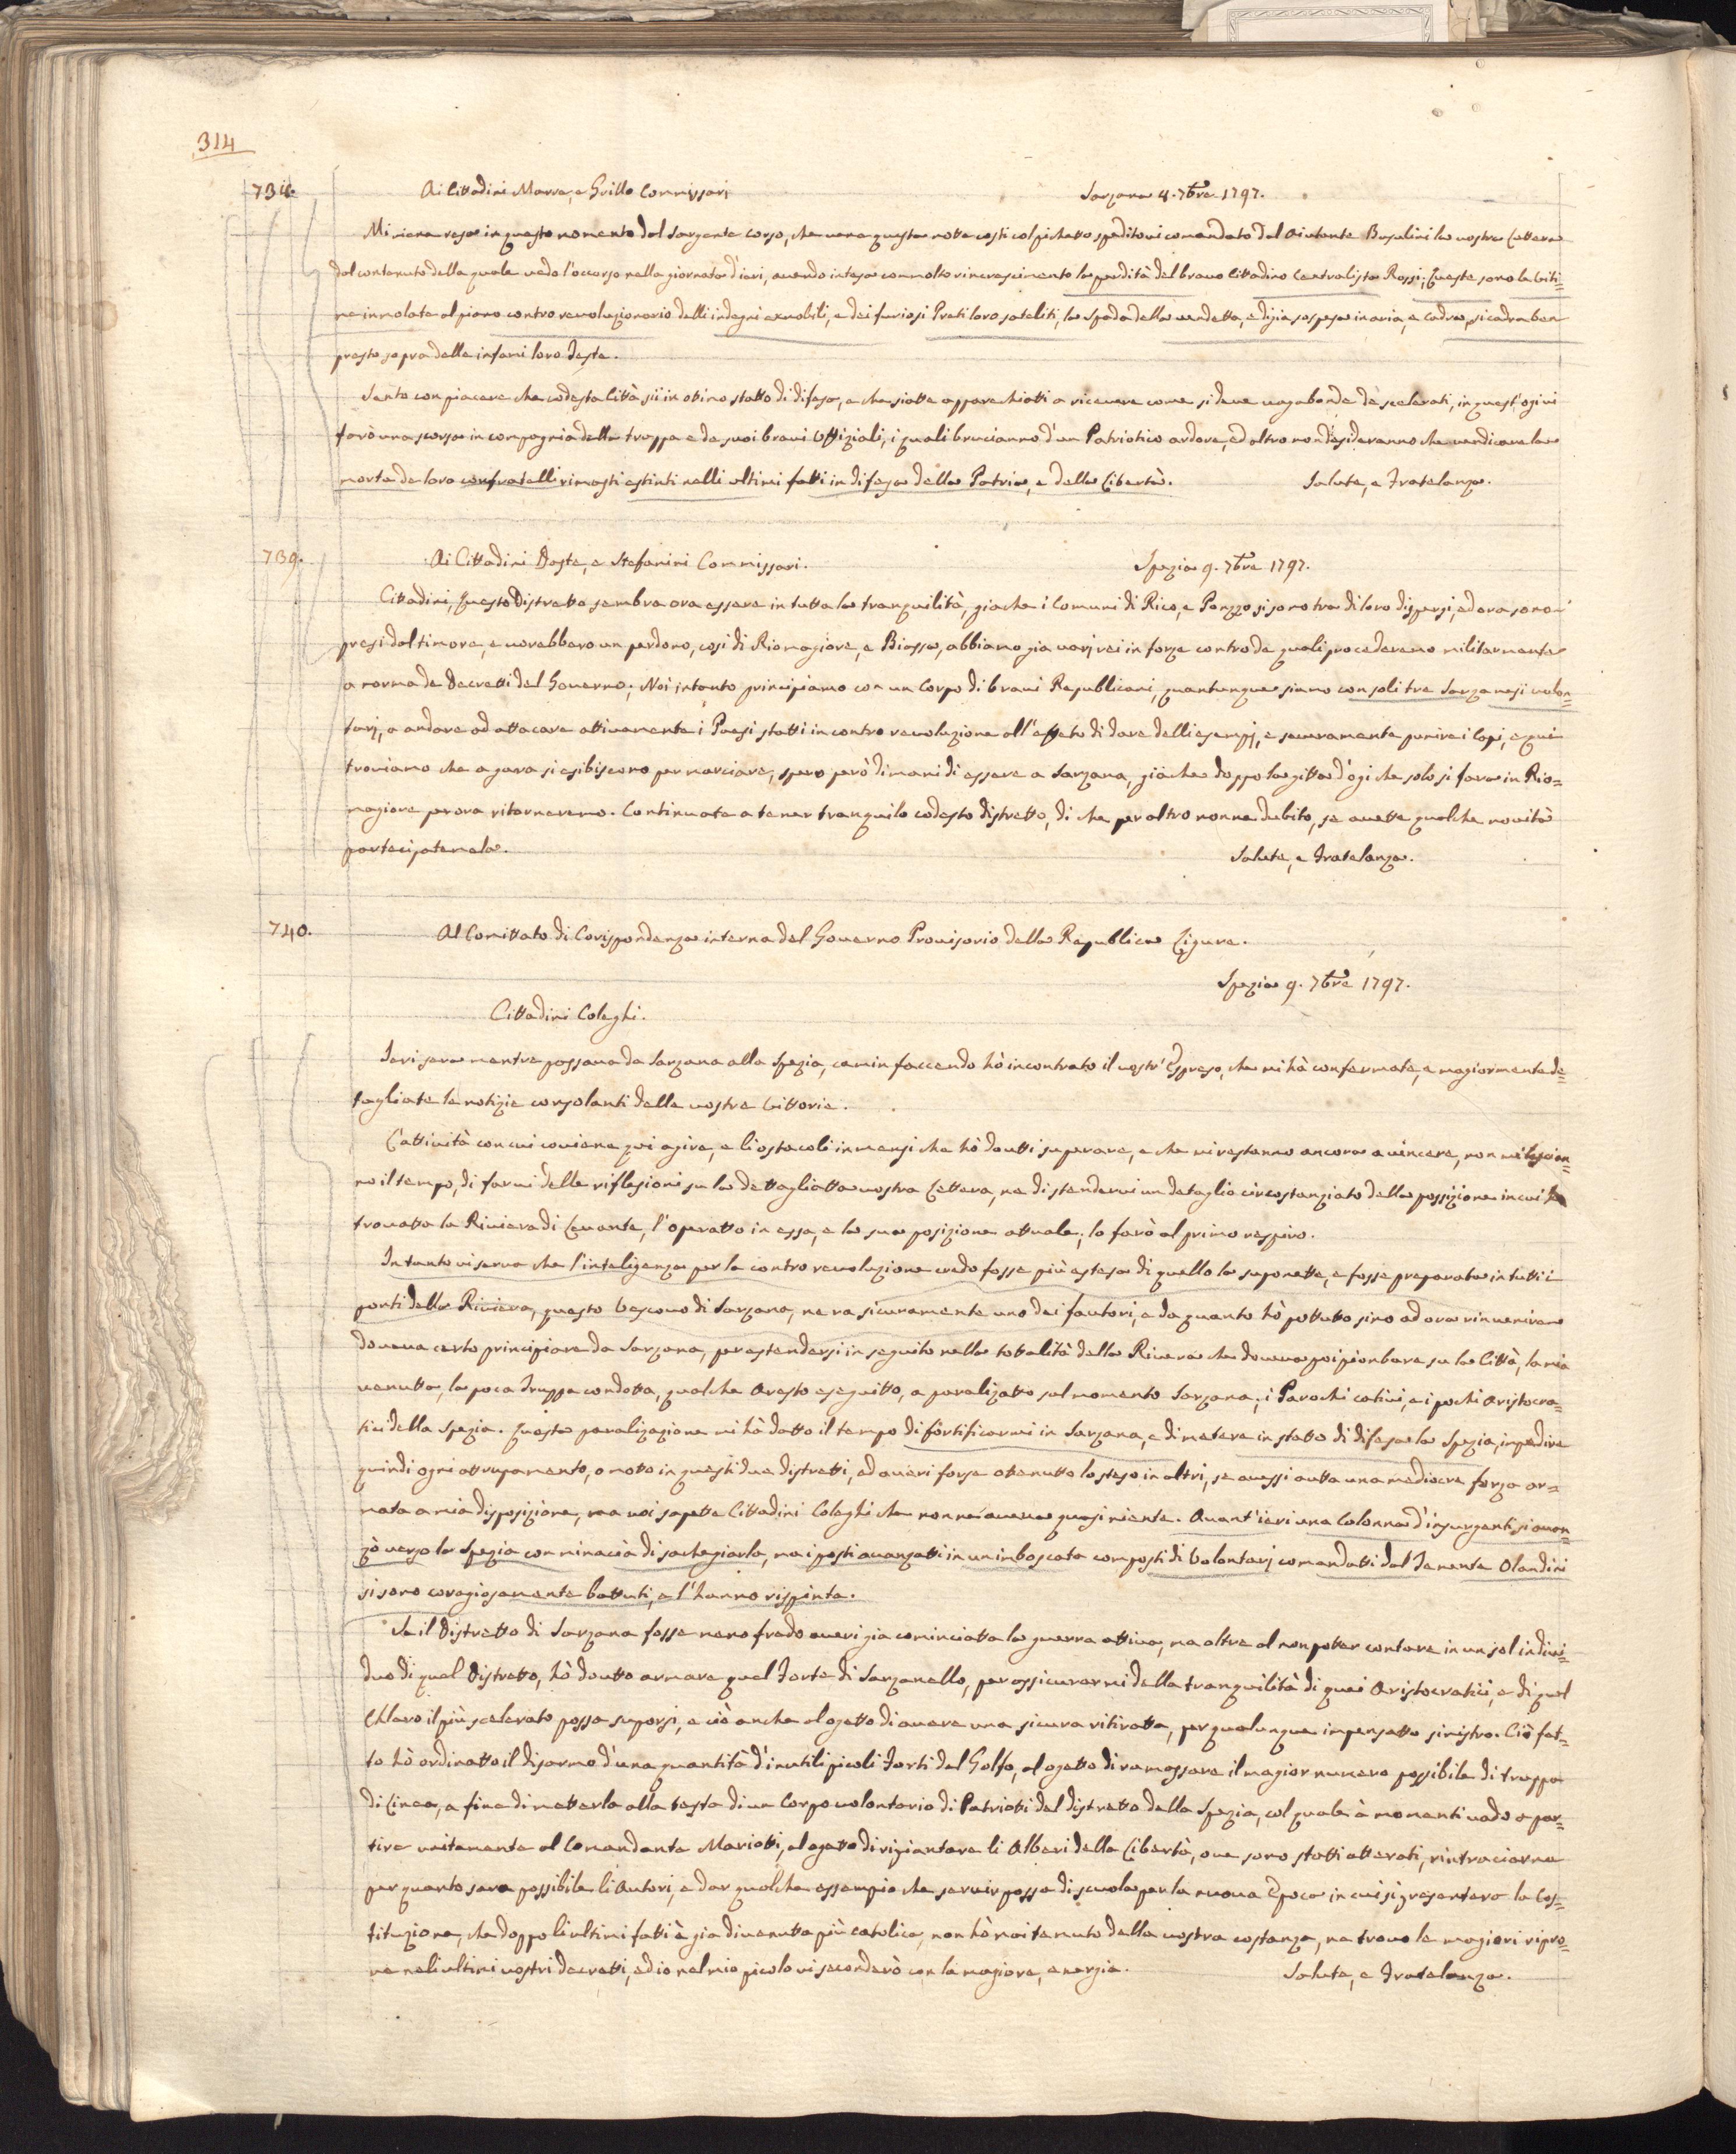 314
738. Ai Cittadini Marre, e Grillo Commissari Sarzana 8. 7bre 1797.
Mi viene reso in questo momento dal Sargente Corso, che vene questa notte costi col pichetto speditovi comandato dal Aiutante Busalini la vostra Lettera
dal contenuto della quale vedo l'occorso nella giornata d'ieri, avendo inteso con molto rincrescimento la perdità del bravo Cittadino Centralista Rossi; Queste sono le Viti=
me immolate al piano contro revoluzionario delli indegni exnobili, e dei furiosi Preti loro sateliti, la spada della vendetta, e digia sospesa in aria, e cadra, si cadra ben
presto sopra delle infami loro Teste.
Sento con piacere che codesta Città sii in otimo statto di difesa, e che siatte apparechiatti a ricevere come si deve vagabonde de scelerati, in quest'ogi vi
farò una scorsa in compagnia della truppa e de suoi bravi Uffiziali, i quali brucianno d'un Patriotico ardore, ed altro non desideranno che vendicare la
morte de loro confratelli rimasti estinti nelli ultimi fatti in difesa della Patria, e della Libertà. Salute, e Fratelanza.
739. Ai Cittadini Boste, e Stefanini Commissari. Spezia 9. 7bre 1797.
Cittadini, Questo Distretto sembra ora essere in tutta la tranquilità, giache i Comuni di Rico, e Ponzo si sono tra di loro dispersi, ed ora sono
presi dal timore, e vorebbero un perdono, cosi di Riomagiore, e Biassa, abbiamo gia varj rei in forze contro de quali procederemo militarmente
a norma de Decretti del Governo. Noi intanto principiamo con un Corpo di bravi Republicani, quantunque siamo con soli tre Sarzanesi volon=
tarj, a andare ad attacare attivamente i Paesi statti in contro revoluzione all'effeto di dare delli esempj, e severamente punire i Capi, e qui
troviamo che a gara si esibiscono per marciare, spero però dimani di essere a Sarzana, giache doppo la gitta d'ogi che solo si fara in Rio=
magiore per ora ritorneremo. Continuate a tener tranquilo codesto distretto, di che per altro non ne dubito, se avette qualche novità
partecipatemela. Salute, e Fratelanza.
740. Al Comittato di Corispondenza interna del Governo Provisorio della Republica Ligure.
Spezia 9. 7bre 1797.
Cittadini Coleghi.
Ieri sera mentre passava da Sarzana alla Spezia, camin faccendo hò incontrato il vostr'Espreso, che mi hà confermate, e magiormente de=
tagliate le notizie consolanti delle vostre Vittorie.
L'attività con cui coviene qui agire, e li ostacoli immensi che hò douti superare, e che mi restanno ancora a vincere, non mi lascian=
no il tempo, di farvi delle riflesioni su la dettagliatta vostra Lettera, ne di stendervi un detaglio circostanziato della possizione in cui hò
trovatta la Riviera di Levante, l'operatto in essa, e la sua posizione attuale, lo farò al primo respiro.
Intanto vi serva che l'inteligenza per la contro revoluzione credo fosse più estesa di quello la suponette, e fosse preparata in tutti i
ponti della Riviera, questo Vescovo di Sarzana, ne ra sicuramente uno dei fautori, e da quanto hò pottuto sino ad ora rinvenire
doveva certo principiare da Sarzana, per estendersi in seguito nella tottalità della Rivera che doveva poi piombare su la Città, la mia
venutta, la poca Truppa condotta, qualche Aresto eseguitto, a paralizatto sul momento Sarzana, i Parochi cativi, e i pochi Aristocra=
tici della Spezia. Questa paralizazione mi hà datto il tempo di fortificarmi in Sarzana, e di metere in statto di difesa la Spezia, impedire
quindi ogni attrupamento, o motto in questi due distretti, ed averi forse ottenutto lo steso in altri, se avessi autta una mediocre forza ar=
mata a mia disposizione, ma voi sapette Cittadini Coleghi che non ne aveva quasi niente. Avant'ieri una Colonna d'insurgenti si avan=
zò verso la Spezia con minacia di sachegiarla, ma i posti avanzatti in un imboscata composti di Volontarj comandatti dal Tenente Olandini
si sono coragiosamente battuti, e l'hanno rispinta.
Se il Distretto di Sarzana fosse meno fredo averi gia cominciatta la guerra attiva, ma oltre al non poter contare in un sol indivi=
duo di quel Distretto, hò doutto armare quel Forte di Sarzanello, per assicurarmi della tranquilità di quei Aristocratici, e di quel
Chlero il più scelerato possa suporsi, e ciò anche al ogetto di avere una sicura ritiratta, per qualunque impensatto sinistro. Ciò fat=
to hò ordinatto il disarmo d'una quantità d'inutili picoli Forti del Golfo, al ogetto di ramassare il magior numero possibile di truppa
di Linea, a fine di metterla alla testa di un Corpo volontario di Patrioti del distretto della Spezia, col quale à momenti vado a par=
tire unitamente al Comandante Mariotti, al ogetto di ripiantare li Alberi della Libertà, ove sono statti atterati, rintraciarne
per quanto sara possibile li Autori, e dar qualche essempio che servir possa di scuola per la nuova Epoca in cui si presentera la Cos=
tituzione, che doppo li ultimi fatti è gia divenutta più catolica, non hò mai temuto della vostra costanza, ne trovo le magiori ripro=
ve neli ultimi vostri decretti, ed io nel mio picolo vi seconderò con la magiore energia. Salute, e Fratelanza.